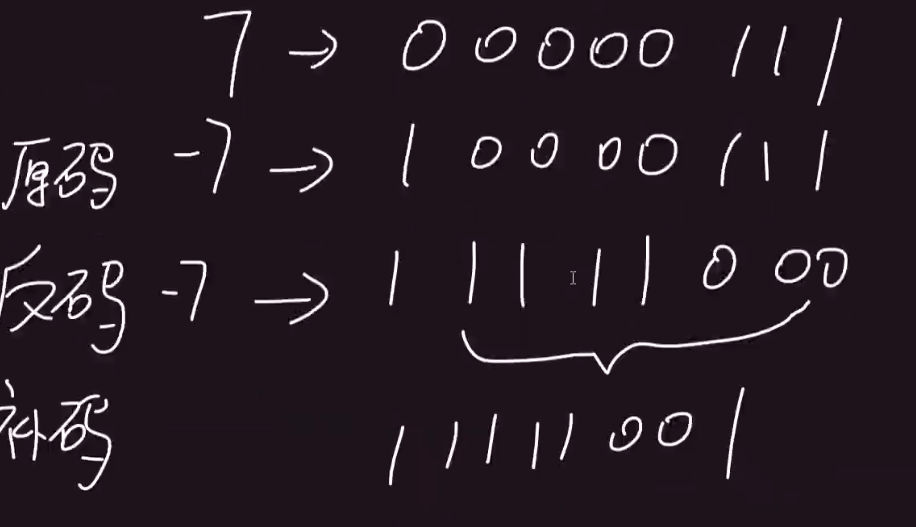 7 → 00000111
原码 -7 → 10000111
反码 -7 → 11111000
补码 11111001